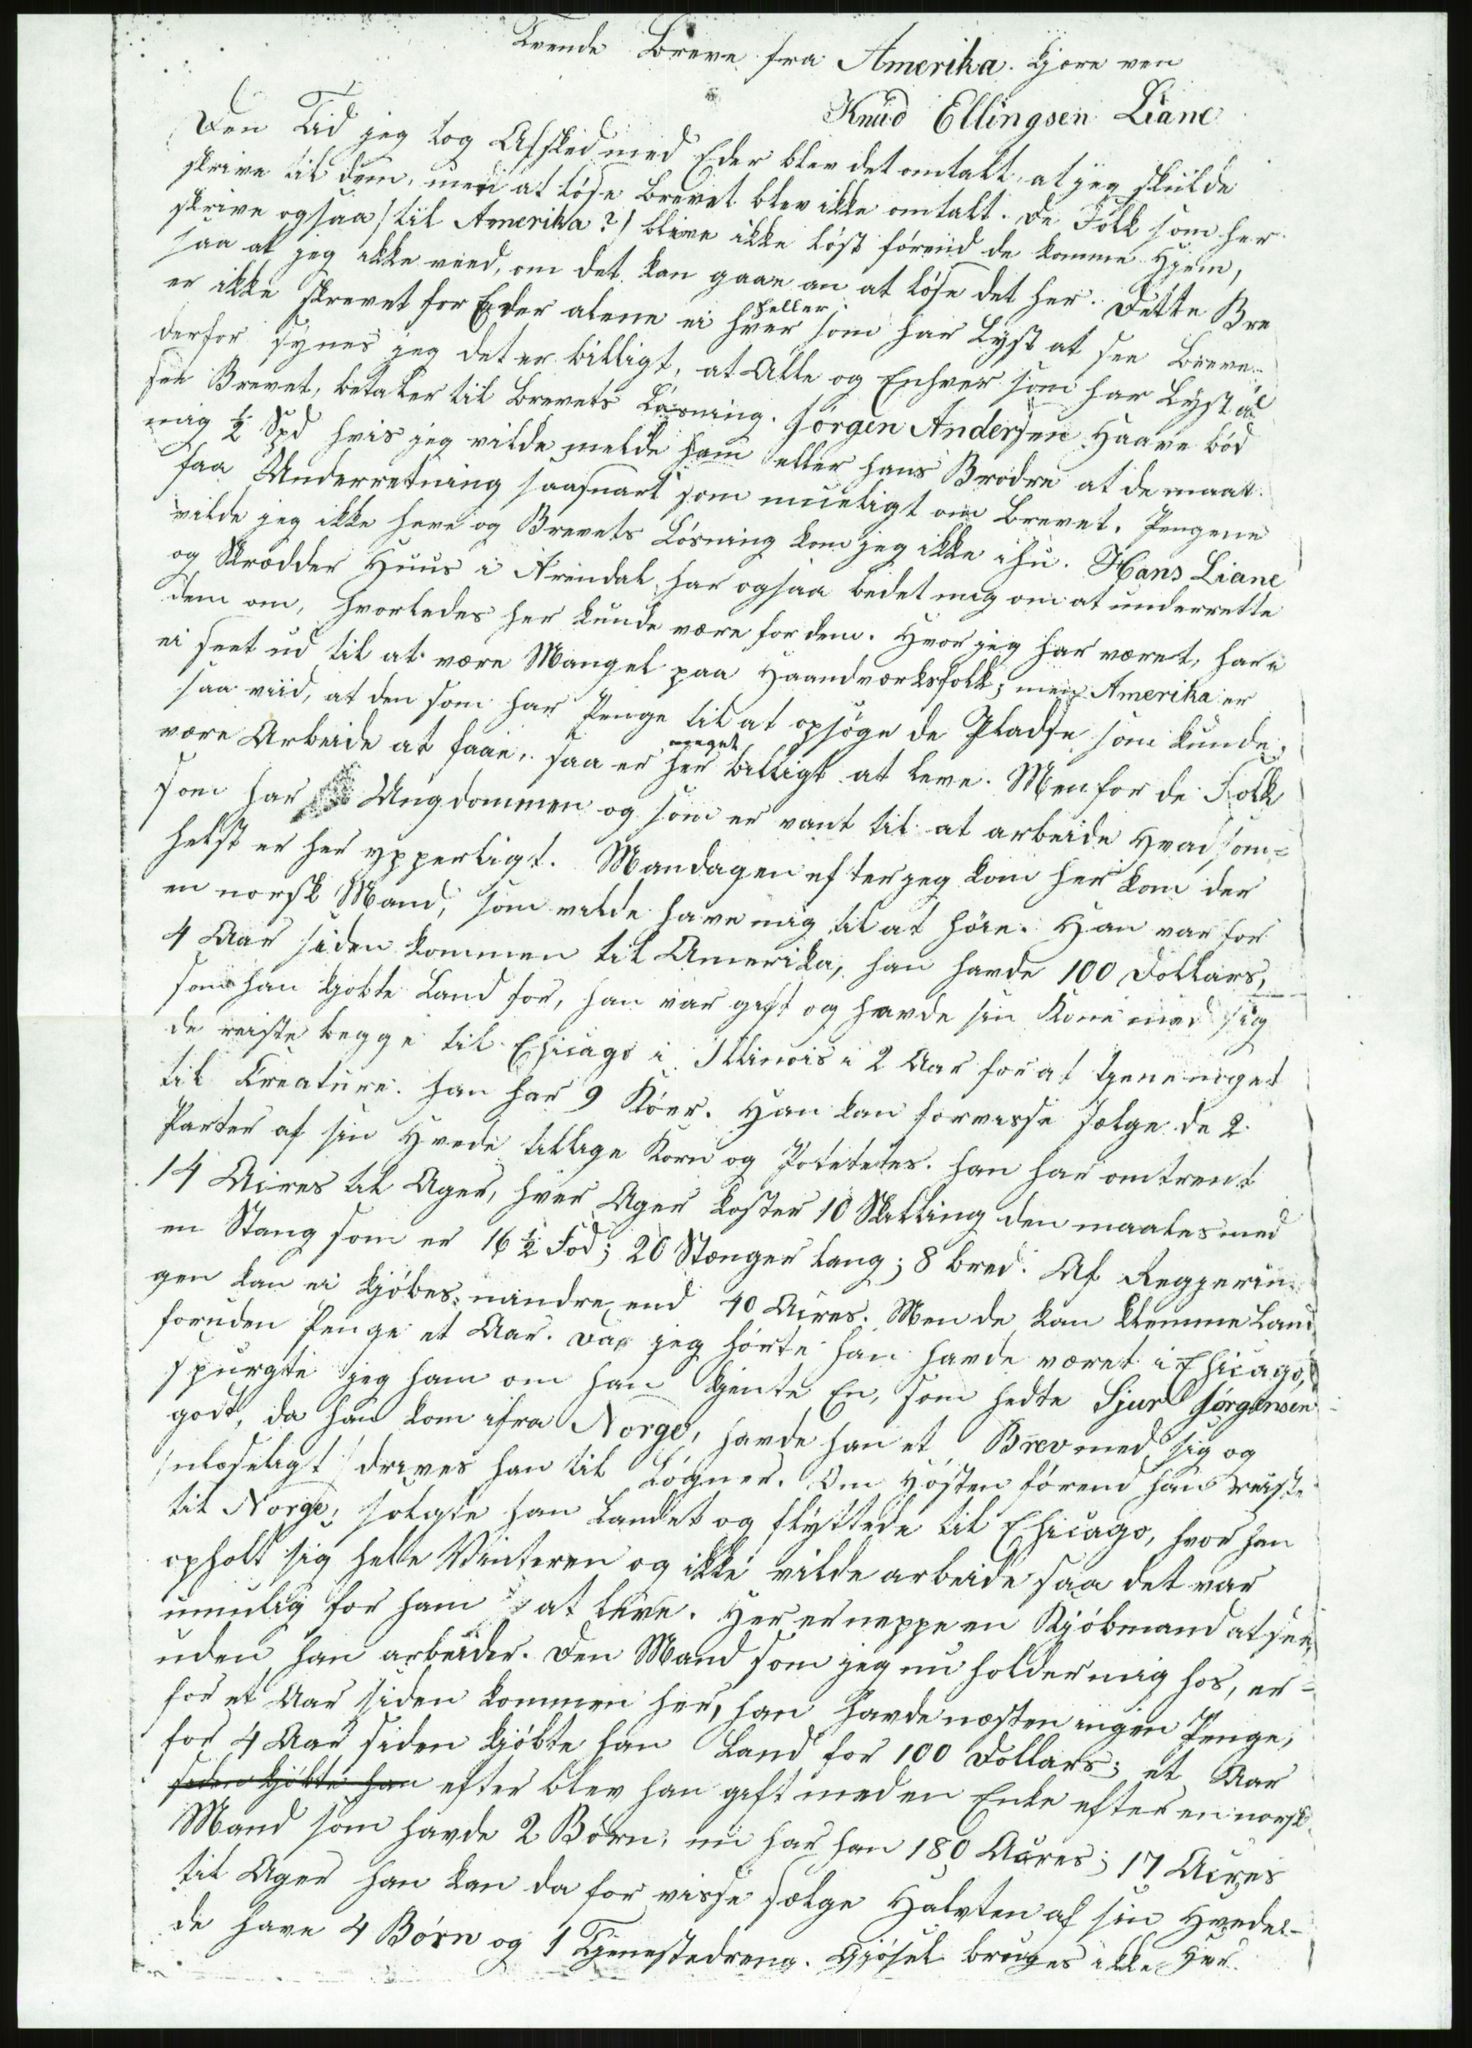 Trende Breve fra Amerika. Kjære ven
Knud Ellingsen Liane
Den Tid jeg tog Afsked med Eder blev det omtalt, at jeg skulde
skrive til dem, men at løse Brevet blev ikke omtalt. De Folk som her
skrive ogsaa (til Amerika?) blive ikke løst førend de komme hjem,
saa at jeg ikke veed, om det kan gaae an at løse det her. Dette Bre
er ikke skrevet for Eder alene ei heller hver som har Lyst at see Breve-
derfor synes jeg det er billigt, at Alle og Enhver som har Lyst at
see Brevet, betaler til Brevets Løsning. Jørgen Andersen Haave bød
mig ½ Spd hvis jeg vilde melde ham eller hans Brødre at de maatte
faa Underretning saasnart som mueligt om Brevet. Pengene
vilde jeg ikke have og Brevets Løsning kom jeg ikke ihu. Hans Liane
og Skrædder Huus i Arendal har ogsaa bedet mig om at underrette
dem om, hvorledes her kunde være for dem. Hvor jeg har været, har e
ei seet ud til at være Mangel paa Haandværksfolk; men Amerika er
saa viid, at den som har Penge til at opsøge de Pladse som kunde
være Arbeide at faae, saa er her meget billigt at leve. Men for de Folk
som har Ungdommen og som er vant til at arbeide hvad som-
helst er her ypperligt. Mandagen efter jeg kom her kom der
en norsk Mand, som vilde have mig til at høie. Han var for
4 Aar siden kommen til Amerika, han havde 100 Dollars,
som han kjøbte Land for, han var gift og havde sin Kone med sig
de reiste begge til Chicago i Illinois i 2 Aar for at tjene noget
til Creature. han har 9 Køer. Han kan forvisse sælge de 2
Parter af sin Hvede tillige Korn og Potetetes. han har omtrent
14 Acres til Ager, hver Ager koster 10 Skilling den maales med
en Stang som er 16 ½ Fod; 20 Stænger lang; 8 bred. Af Regjerin
gen kan ei kjøbes mindre end 40 Acres. Men de kan klemme Land
foruden Penge et Aar. Da jeg hørte han havde været i Chicago,
spurgte jeg ham om han kjente En, som hedte Sjur Jørgensen
godt, da han kom ifra Norge, havde han et Brev med sig og
(ulæseligt) drives han til Løgner. Om Høsten førend han reiste
til Norge, solgte han Landet og flyttede til Chicago, hvor han
opholdt sig hele Vinteren og ikke vilde arbeide saa det var
umulig for ham at leve. Her er neppe en Kjøbmand at see,
uden han arbeider. Den Mand som jeg nu holder mig hos, er
for et Aar siden kommen her, han havde næsten ingen Penge,
for 4 Aar siden kjøbte han Land for 100 Dollars; et Aar
siden kjøbte han efter blev han gift med en Enke efter en norsk
Mand som havde 2 Børn, nu har han 180 Acres; 17 Acres
til Ager han kan da for visse sælge Halvten af sin Hvede-
de have 4 Børn og 1 Tjenestedreng. Gjøsel bruges ikke her.